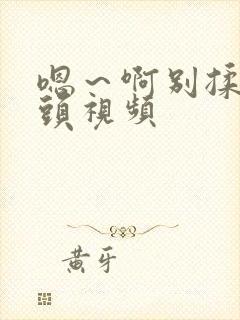 嗯～啊别揉
頭視頻
黄牙